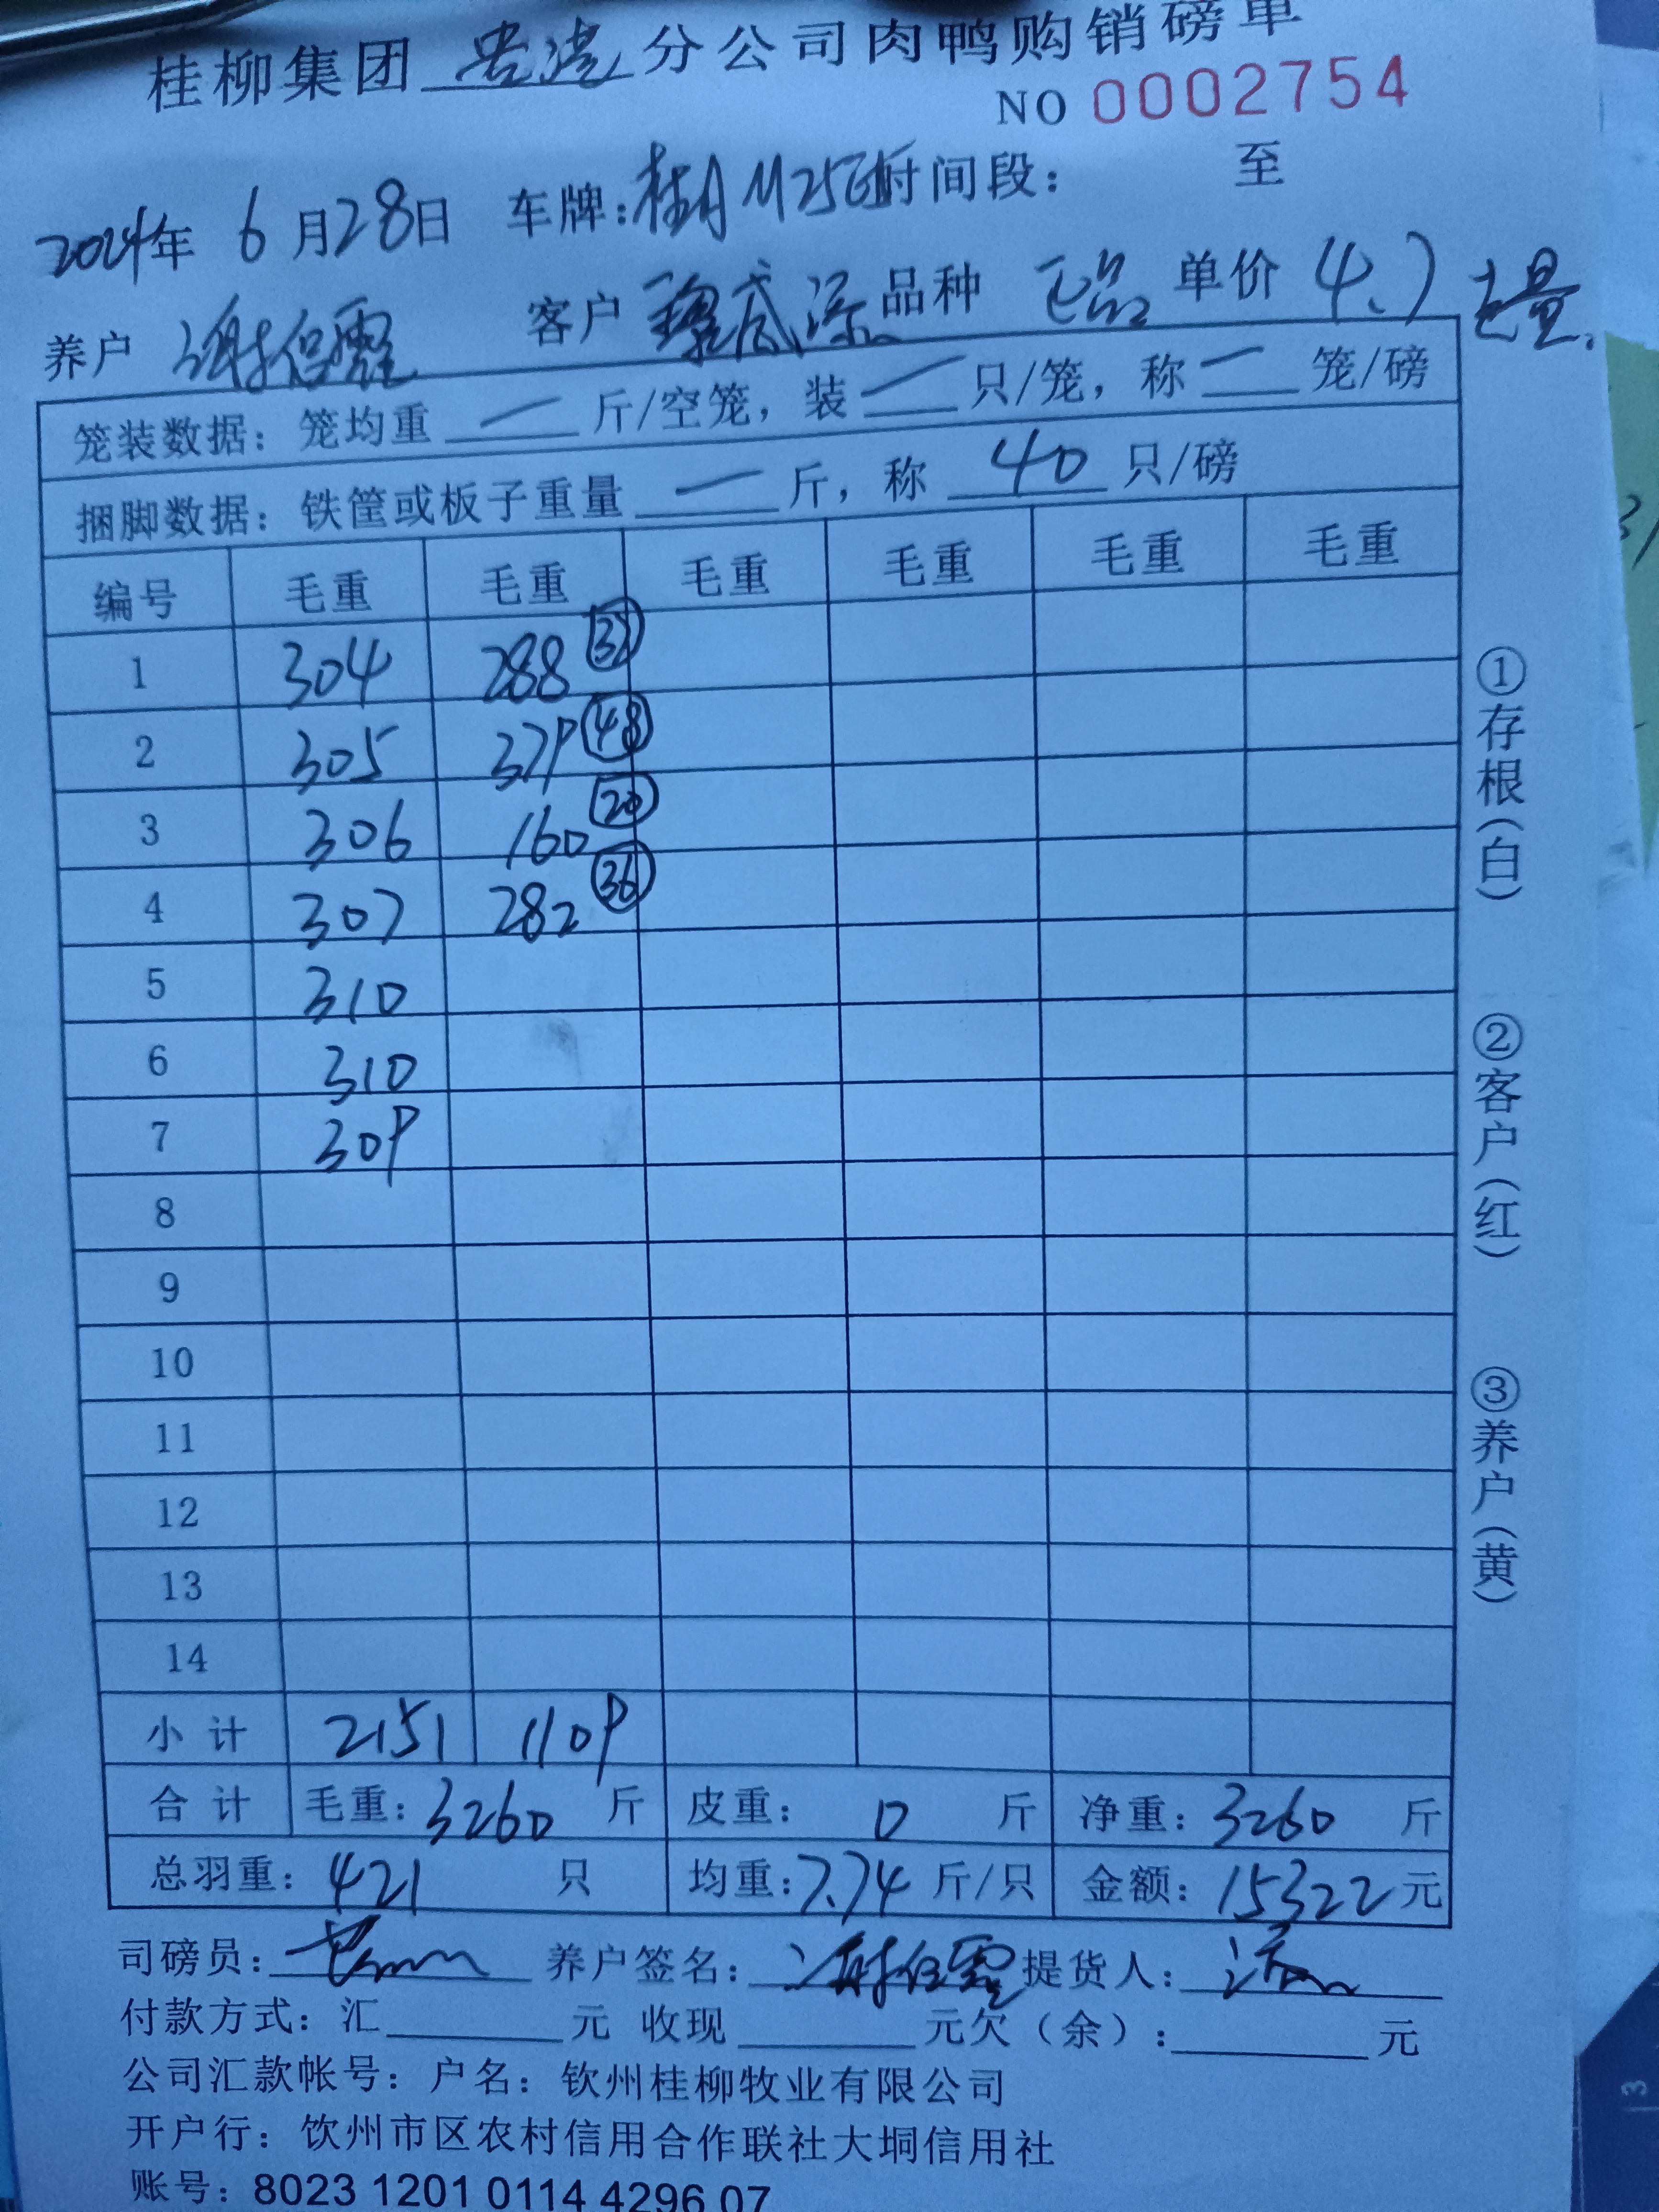 桂柳集团 贵港 分公司肉鸭购销磅单
NO 0002754
2024年 6月28日 车牌:桂A 时间段: 至
养户 谢信霞 客户 品种 单价 4.7
笼装数据: 笼均重 一 斤/空笼, 装 一 只/笼, 称 一 笼/磅
捆脚数据: 铁筐或板子重量 一 斤, 称 40 只/磅
编号 毛重 毛重 毛重 毛重 毛重 毛重
1 304 288
2 305 379 48
3 306 160 20
4 307 282 36
5 310
6 310
7 309
8
9
10
11
12
13
14
小计 2151 1109
合计 毛重: 3260 斤 皮重: 0 斤 净重: 3260 斤
总羽重: 421 只 均重: 7.74 斤/只 金额: 15322 元
司磅员: 养户签名: 谢信霞 提货人:
付款方式: 汇 元 收现 元欠(余): 元
公司汇款帐号: 户名: 钦州桂柳牧业有限公司
开户行: 饮州市区农村信用合作联社大垌信用社
账号: 8023 1201 0114 4296 07
①存根(白)
②客户(红)
③养户(黄)